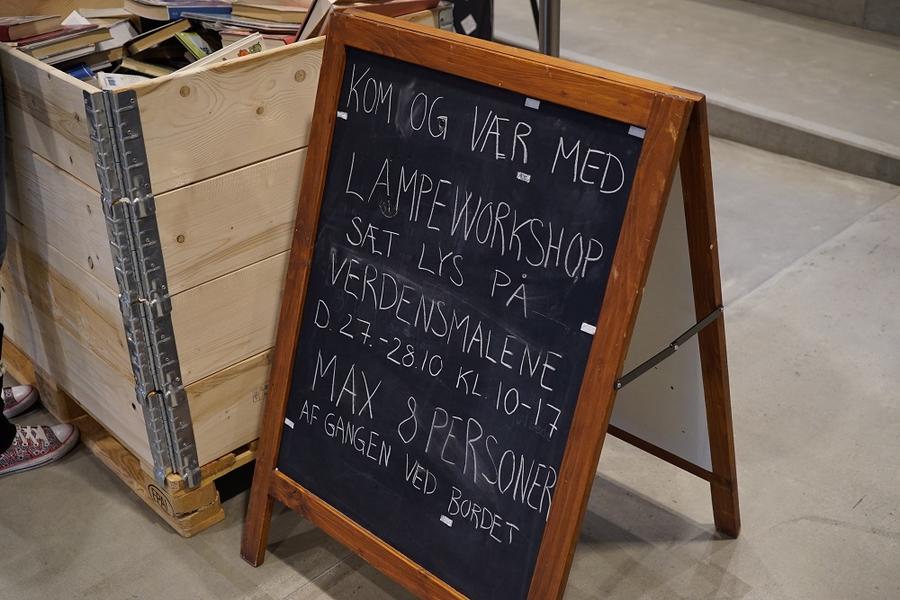 KOM OG VÆR MED
LAMPEWORKSHOP
SÆT LYS PÅ
VERDENSMALENE
D. 27.-28.10 KL. 10-17
MAX 8 PERSONER
AF GANGEN VED BORDET
EPAL